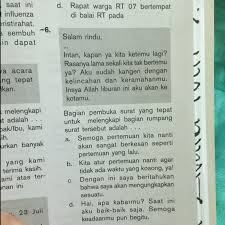 saat ini
t influenza
eristirahat.
a sembuh
in dapat
wa acara
ng tepat
kan.
melengkapi
at adalah ...
bak/Ibu, kami
ih.
urkan banyak
yang kami
terima kasih.
ami atas ter-
nan ini
23 Juli
d. Rapat warga RT 07 bertempat
di balai RT pada
6.
Salam rindu,
...
Intan, kapan ya kita ketemu lagi?
Rasanya lama sekali kita tak bertemu
ya? Aku sudah kangen dengan
kelincahan dan keramahanmu.
Insya Allah liburan ini aku akan ke
kotamu.
Bagian pembuka surat yang tepat
untuk melengkapi bagian rumpang
surat tersebut adalah ...
a. Semoga pertemuan kita nanti
akan sangat berkesan seperti
pertemuan yang lalu.
b. Kita atur pertemuan nanti agar
tidak ada waktu yang kosong, ya!
c. Dengan ini saya beritahukan
bahwa saya akan mengungkapkan
sesuatu.
d. Hai, apa kabarmu? Saat ini
aku baik-baik saja. Semoga
keadaanmu pun begitu.